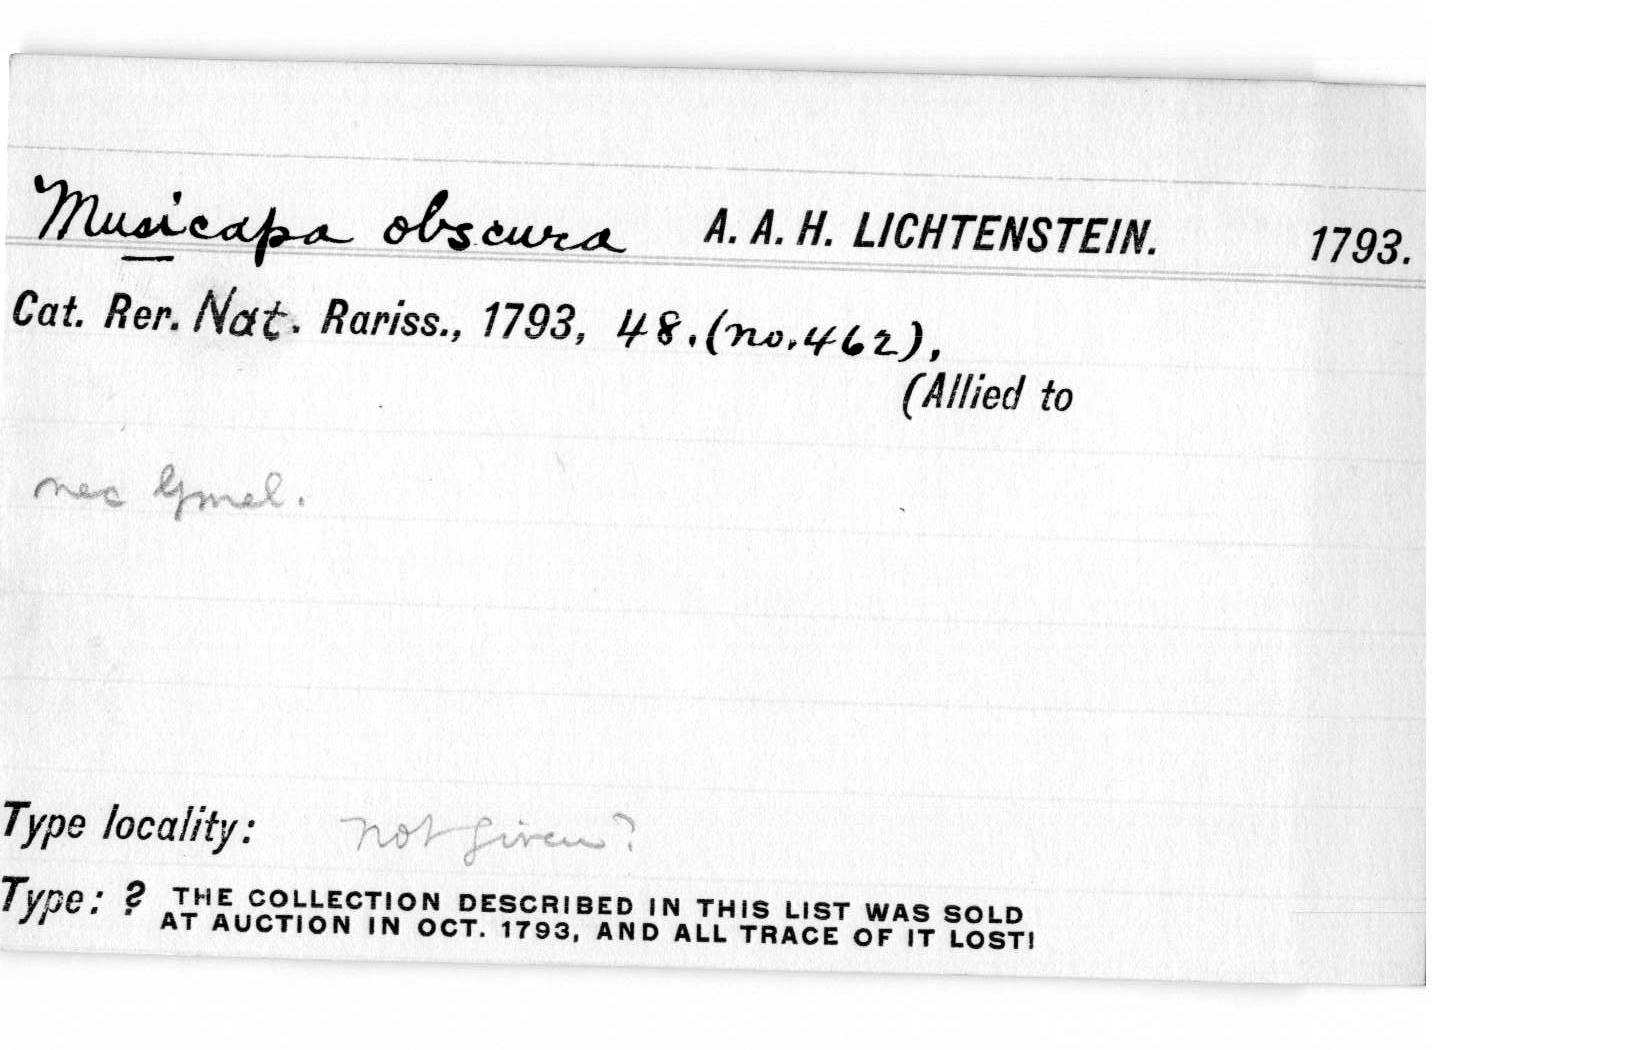 Musicapa obscura A. A. H. LICHTENSTEIN. 1793.
Cat. Rer. Nat. Rariss., 1793, 48. (no. 462),
(Allied to
nec Gmel.
Type locality: not given?
Type: ? THE COLLECTION DESCRIBED IN THIS LIST WAS SOLD
AT AUCTION IN OCT. 1793, AND ALL TRACE OF IT LOST!